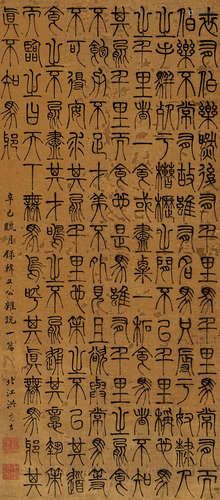 世有伯樂然後有千里馬千里馬常有而
伯樂不常有故雖有名馬祇辱于奴隸人
之手駢死于槽櫪之間不以千里稱也馬
之千里者一食或盡粟一石食馬者不知
其能千里而食也是馬雖有千里之能食
不飽力不足才美不外見且欲與常馬等
不可得安求其能千里也策之不以其道
食之不能盡其才鳴之不能通其意執策
而臨之曰天下無馬嗚呼其真無馬邪其
真不知馬邪
辛巳臘月錄韓文公雜說一篇 北江洪亮吉